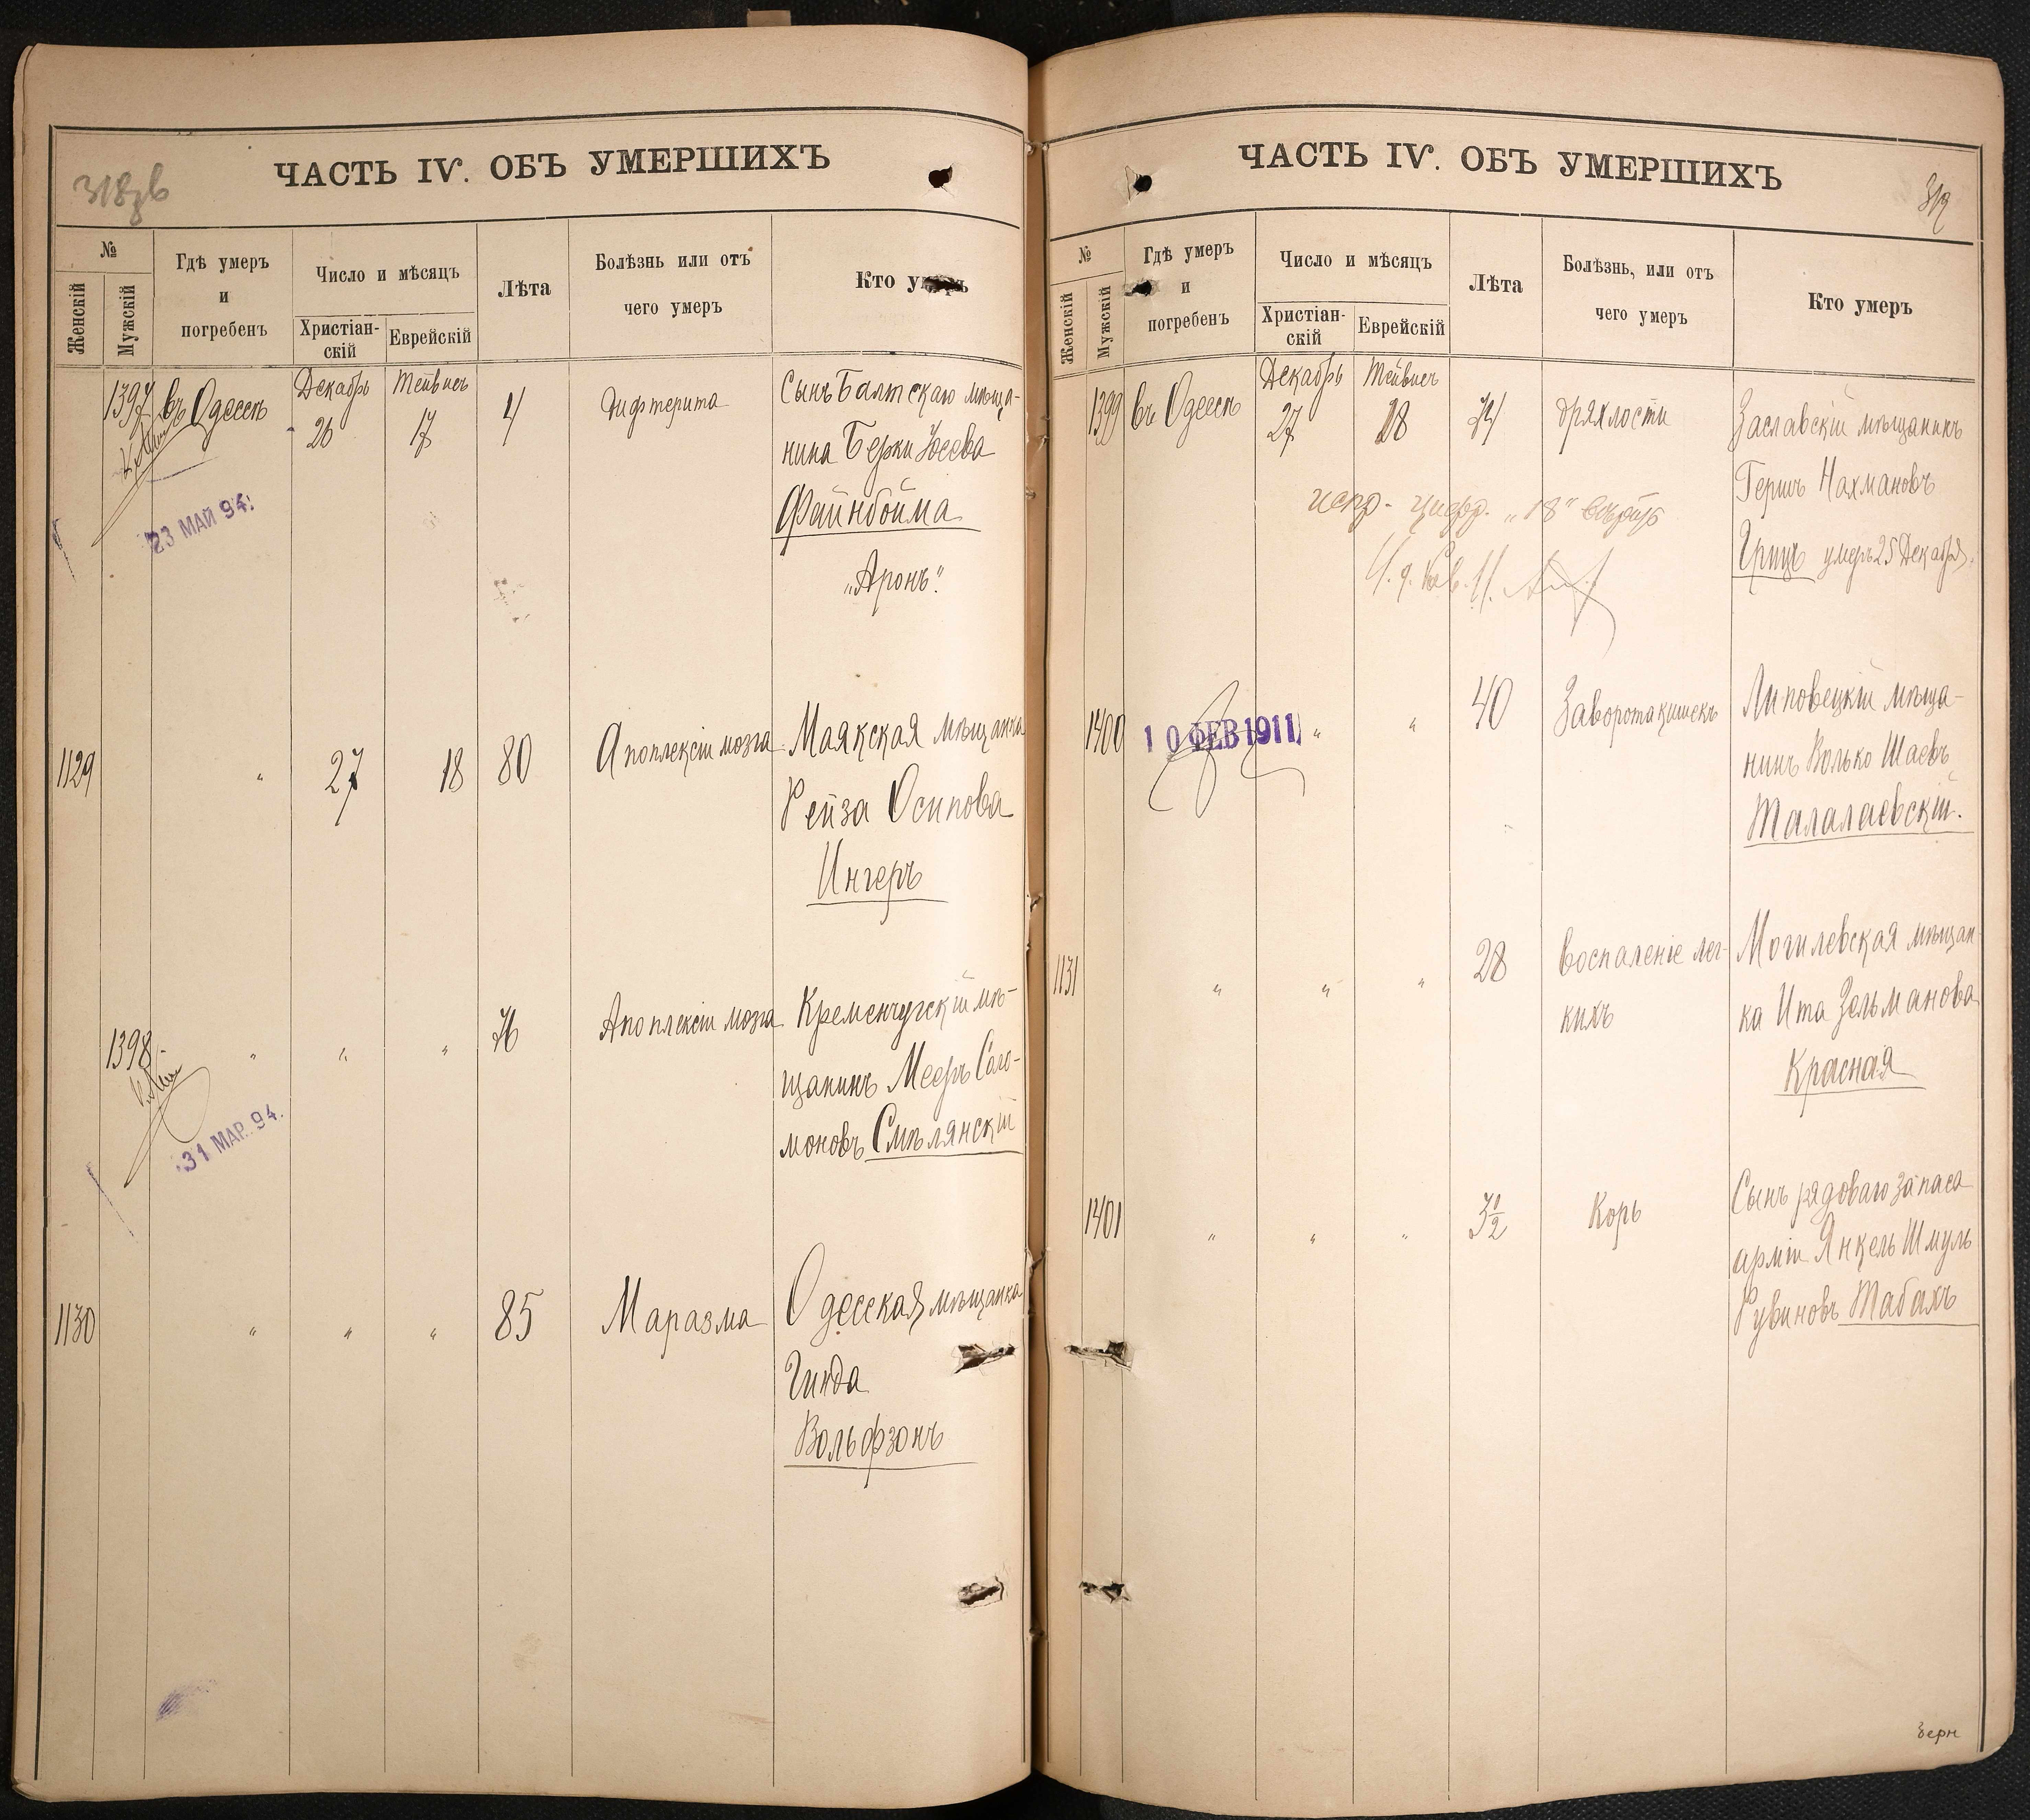 ЧАСТЬ IV. ОБЪ УМЕРШИХЪ
318
№
Женскій
Мужскій
Гдѣ умеръ
и
погребенъ
Число и мѣсяцъ
Христіан-
скій
Еврейскій
Лѣта
Болѣзнь или отъ
чего умеръ
Кто умеръ
1397 въ Одессѣ Декабрь 26 Тейвисъ 17 4 Дифтерита Сынъ Балтскаго мѣща-
нина Берки Іосева
Файнбойма
„Аронъ“.
23 МАЙ 94.
1129 " 27 18 80 Апоплексіи мозга Маякская мѣщанка
Рейза Осипова
Ингеръ
1398 " " " 76 Апоплексіи мозга Кременчугскій мѣ-
щанинъ Мееръ Соло-
моновъ Смѣлянскій
31 МАР. 94.
1130 " " " 85 Маразма Одесская мѣщанка
Гинда
Вольфзонъ
ЧАСТЬ IV. ОБЪ УМЕРШИХЪ
319
№
Женскій
Мужскій
Гдѣ умеръ
и
погребенъ
Число и мѣсяцъ
Христіан-
скій
Еврейскій
Лѣта
Болѣзнь, или отъ
чего умеръ
Кто умеръ
1399 въ Одессѣ Декабрь 27 Тейвисъ 18 74 дряхлости Заславскій мѣщанинъ
Гершъ Нахмановъ
Грицъ умеръ 25 Декабря.
испр. цифр. „18“ вѣрить
1400 10 ФЕВ 1911 " " 40 Заворота кишекъ Липовецкій мѣща-
нинъ Волько Шаевъ
Талалаевскій.
1131 " " " 28 воспаленіе лег-
кихъ
Могилевская мѣщан-
ка Ита Зельманова
Красная
1401 " " " 3½ Корь Сынъ рядоваго запаса
арміи Янкель Шмуль
Рувиновъ Табахъ